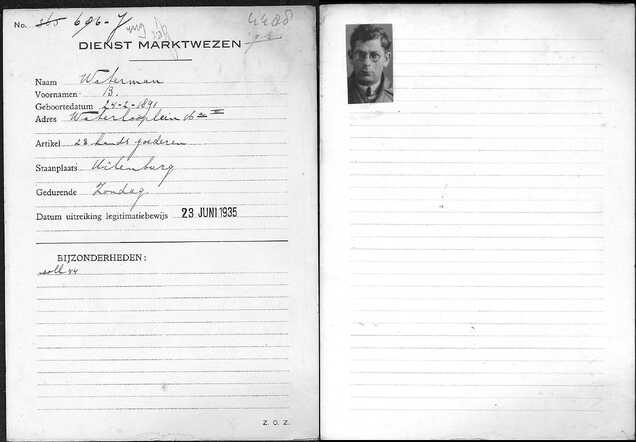 No. 365 696-J 4408
DIENST MARKTWEZEN
Naam Waterman
Voornamen B.
Geboortedatum 24-2-1891
Adres Waterlooplein
Artikel 2e hands goederen
Staanplaats Uilenburg
Gedurende Zondag
Datum uitreiking legitimatiebewijs 23 JUNI 1935
BIJZONDERHEDEN:
Z. O. Z.